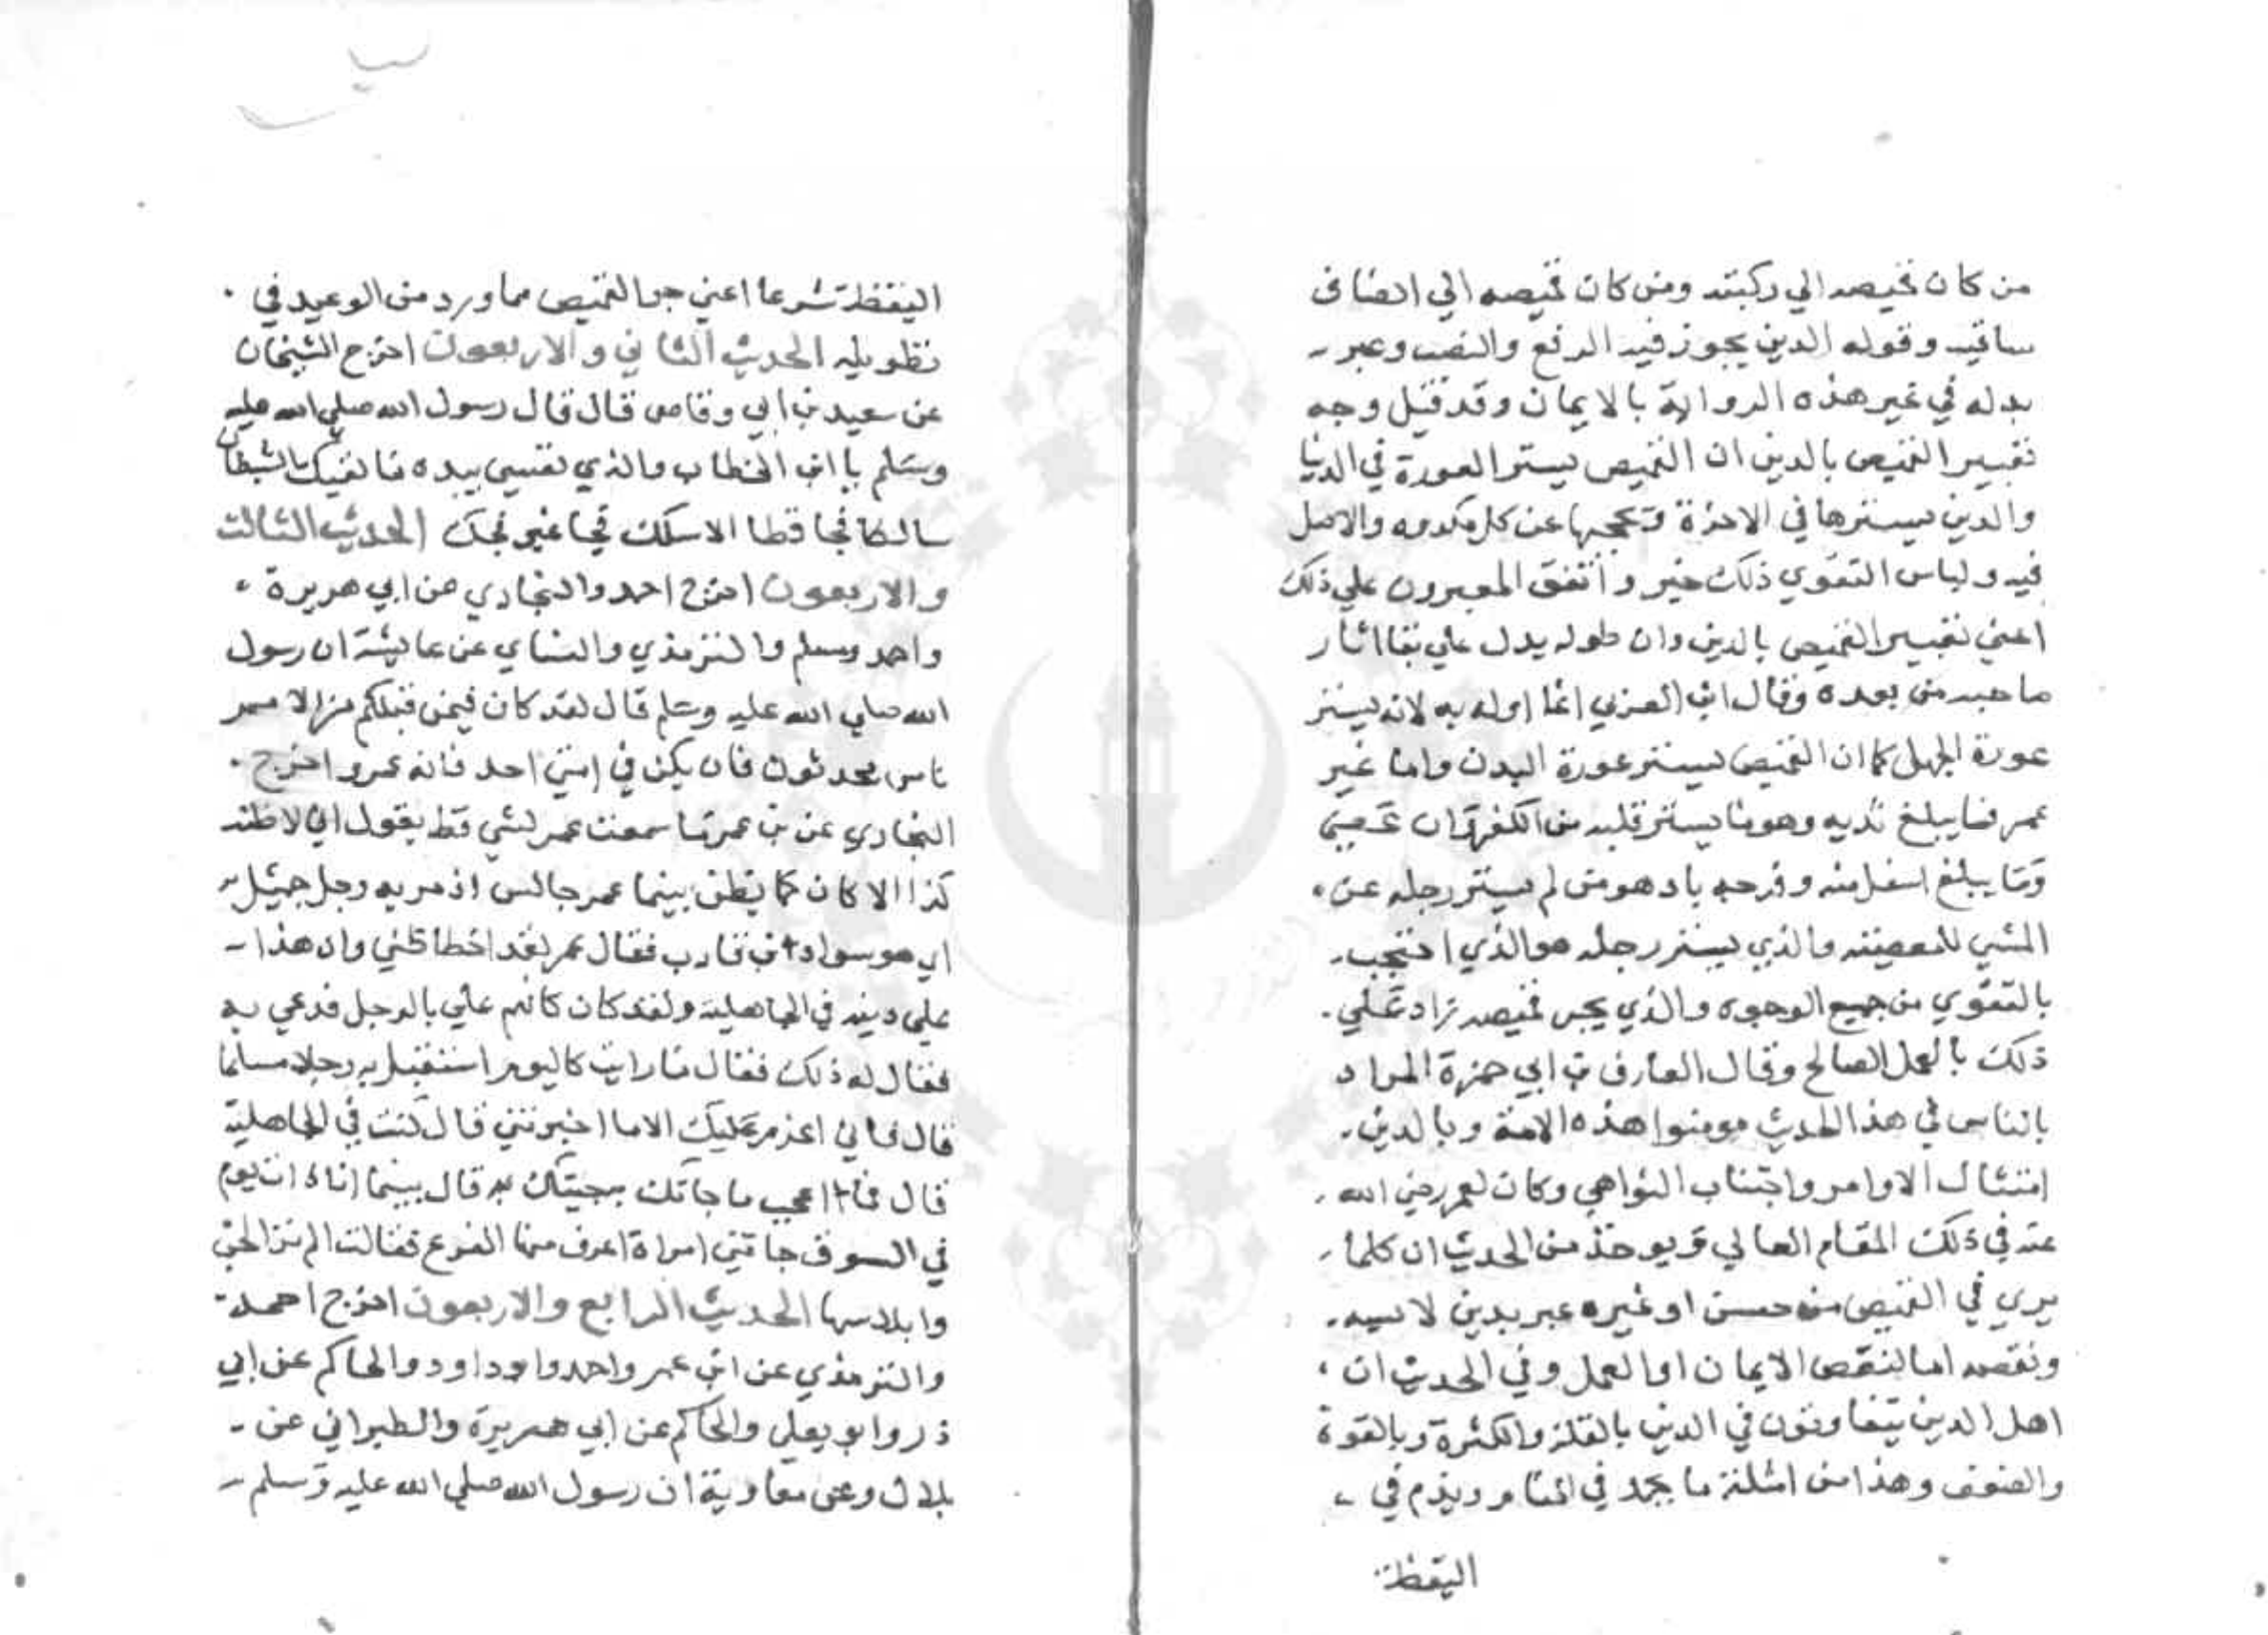 من كان قميصه الي ركبته ومن كان قميصه الي انصاف
ساقيه وقوله الدين يجوز فيه الرفع والنصب وعبر
بدله في غير هذه الرواية بالايمان وقد قيل وجه
تفسير القميص بالدين ان القميص يستر العورة في الدنيا
والدين يسترها في الاخرة ويحجبها عن كل مكروه والاصل
فيه ولباس التقوي ذلك خير واتفق المعبرون علي ذلك
اعني تفسير القميص بالدين وان طوله يدل علي بقا اثار
صاحبه من بعده وقال ابن العربي انما اوله به لانه يستر
عورة الجهل كما ان القميص يستر عورة البدن واما غير
عمر فما يبلغ ثديه وهو ما يستر قلبه من الكفر وان عصي
وما يبلغ اسفل منه وفرجه باد هو من لم يستر رجله عن
المشي للمعصية والذي يستر رجله هو الذي احتجب
بالتقوي من جميع الوجوه والذي يجر قميصه زاد علي
ذلك بالعمل الصالح وقال العارف بن ابي حمزة المراد
بالناس في هذا الحديث مومنوا هذه الامة وبالدين
امتثال الاوامر واجتناب النواهي وكان لعمر رضي الله
عنه في ذلك المقام العالي ويوخذ من الحديث ان كلما
يري في القميص من حسن او غيره عبر بدين لابسه
ونقصه اما لنقص الايمان او العمل وفي الحديث ان
اهل الدين يتفاوتون في الدين بالقلة والكثرة وبالقوة
والضعف وهذا من امثلة ما يحمد في المنام ويذم في
اليقظة
اليقظة شرعا اعني جر القميص مما ورد من الوعيد في
تطويله الحديث الثاني والاربعون اخرج الشيخان
عن سعيد بن ابي وقاص قال قال رسول الله صلي الله عليه
وسلم يا ابن الخطاب والذي نفسي بيده ما لقيك الشيطان
سالكا فجا قط الا سلك فجا غير فجك الحديث الثالث
والاربعون اخرج احمد والبخاري عن ابي هريرة
واحمد ومسلم والترمذي والنساي عن عايشة ان رسول
الله صلي الله عليه وسلم قال لقد كان فيمن قبلكم من الامم
ناس محدثون فان يكن في امتي احد فانه عمر واخرج
البخاري عن بن عمر ما سمعت عمر لشي قط يقول اني لاظنه
كذا الا كان كما يظن بينما عمر جالس اذ مر به رجل جميل
اي هو سواد بن قارب فقال عمر لقد اخطا ظني وان هذا
علي دينه في الجاهلية ولقد كان كاهنهم علي بالرجل فدعي به
فقال له ذلك فقال ما رايت كاليوم استقبل به رجلا مسلما
قال فاني اعزم عليك الا ما اخبرتني قال كنت في الجاهلية
قال فما اعجب ما جاتك جنيتك به قال بينما انا ذات يوم
في السوق جاتني امراة اعرف منها الفزع فقالت الم تر الجن
وابلاسها الحديث الرابع والاربعون اخرج احمد
والترمذي عن ابن عمر واحمد وابوداود والحاكم عن ابي
ذر وابو يعلي والحاكم عن ابي هريرة والطبراني عن
بلال وعن معاوية ان رسول الله صلي الله عليه وسلم